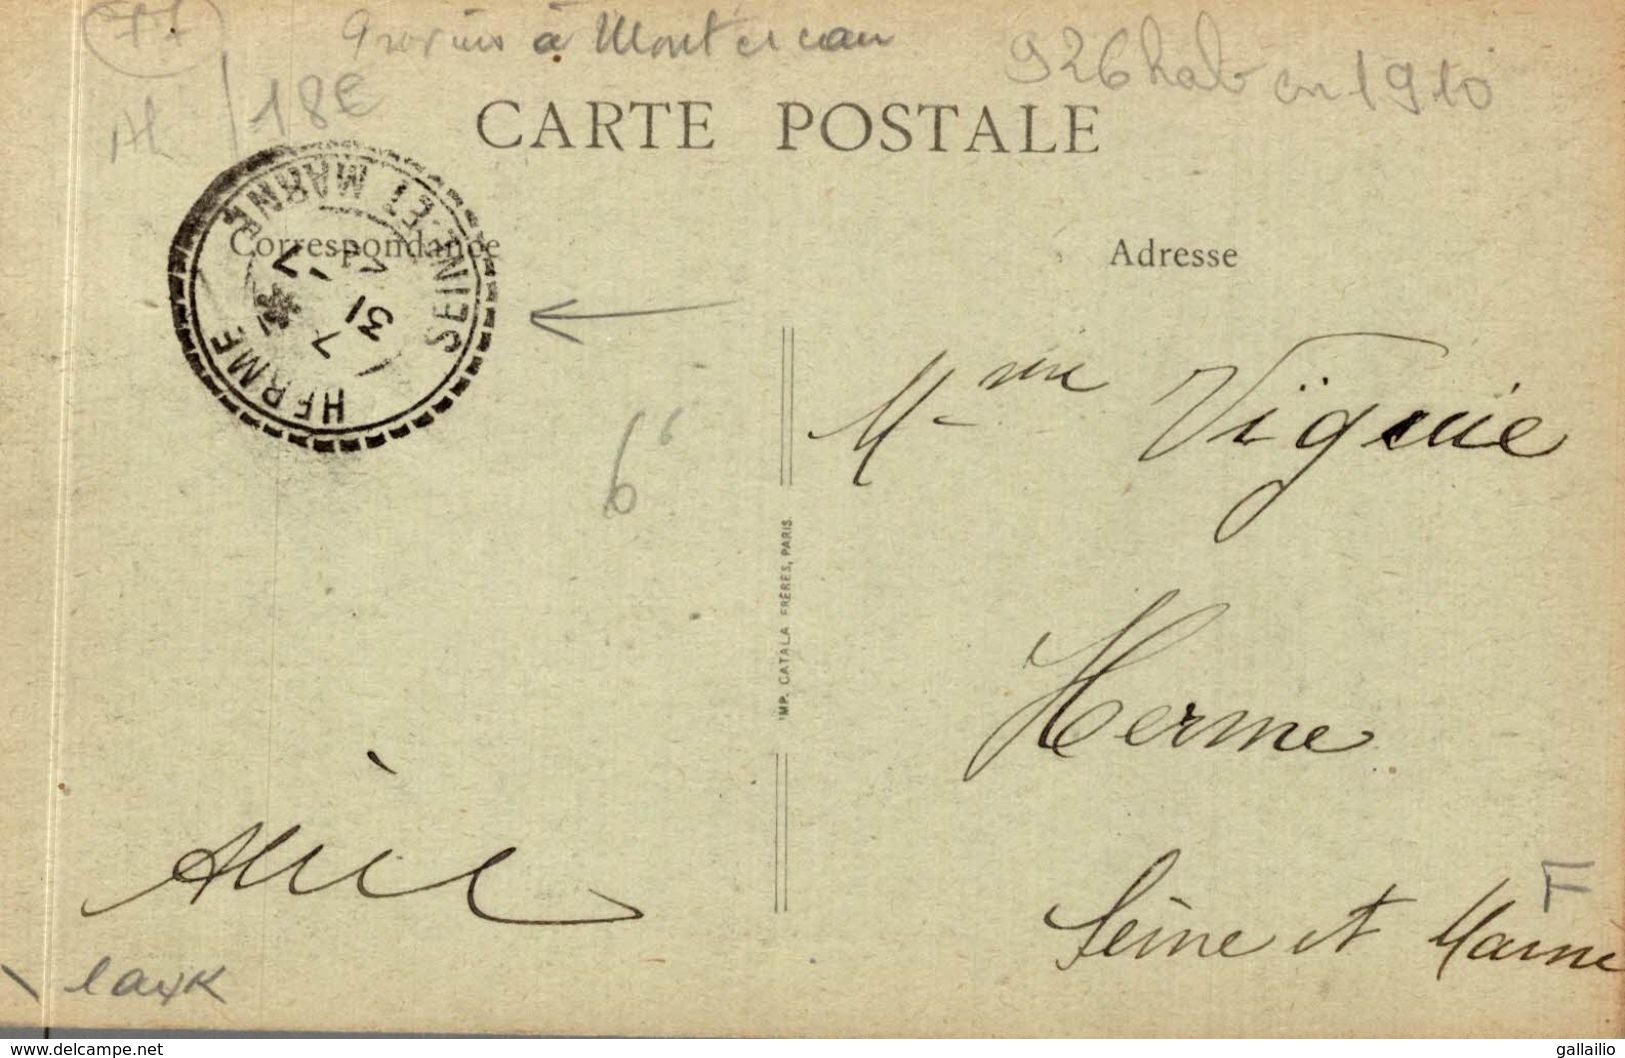 77 Provins à Montereau 926 hab en 1910
18€
CARTE POSTALE
Correspondance
Adresse
HERME
SEINE-ET-MARNE
7
31
-7
Mme Viguié
6
IMP. CATALA FRÈRES, PARIS.
Herme
Alice
Seine et Marne
F
https://www.delcampe.net
gallailio